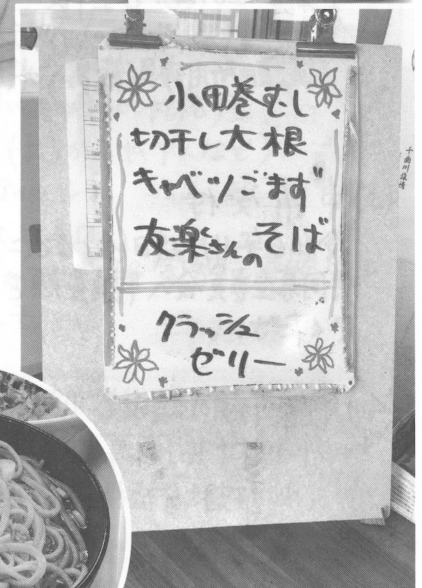 小田巻むし
切干し大根
キャベツごまず
友楽さんのそば
クラッシュ
ゼリー